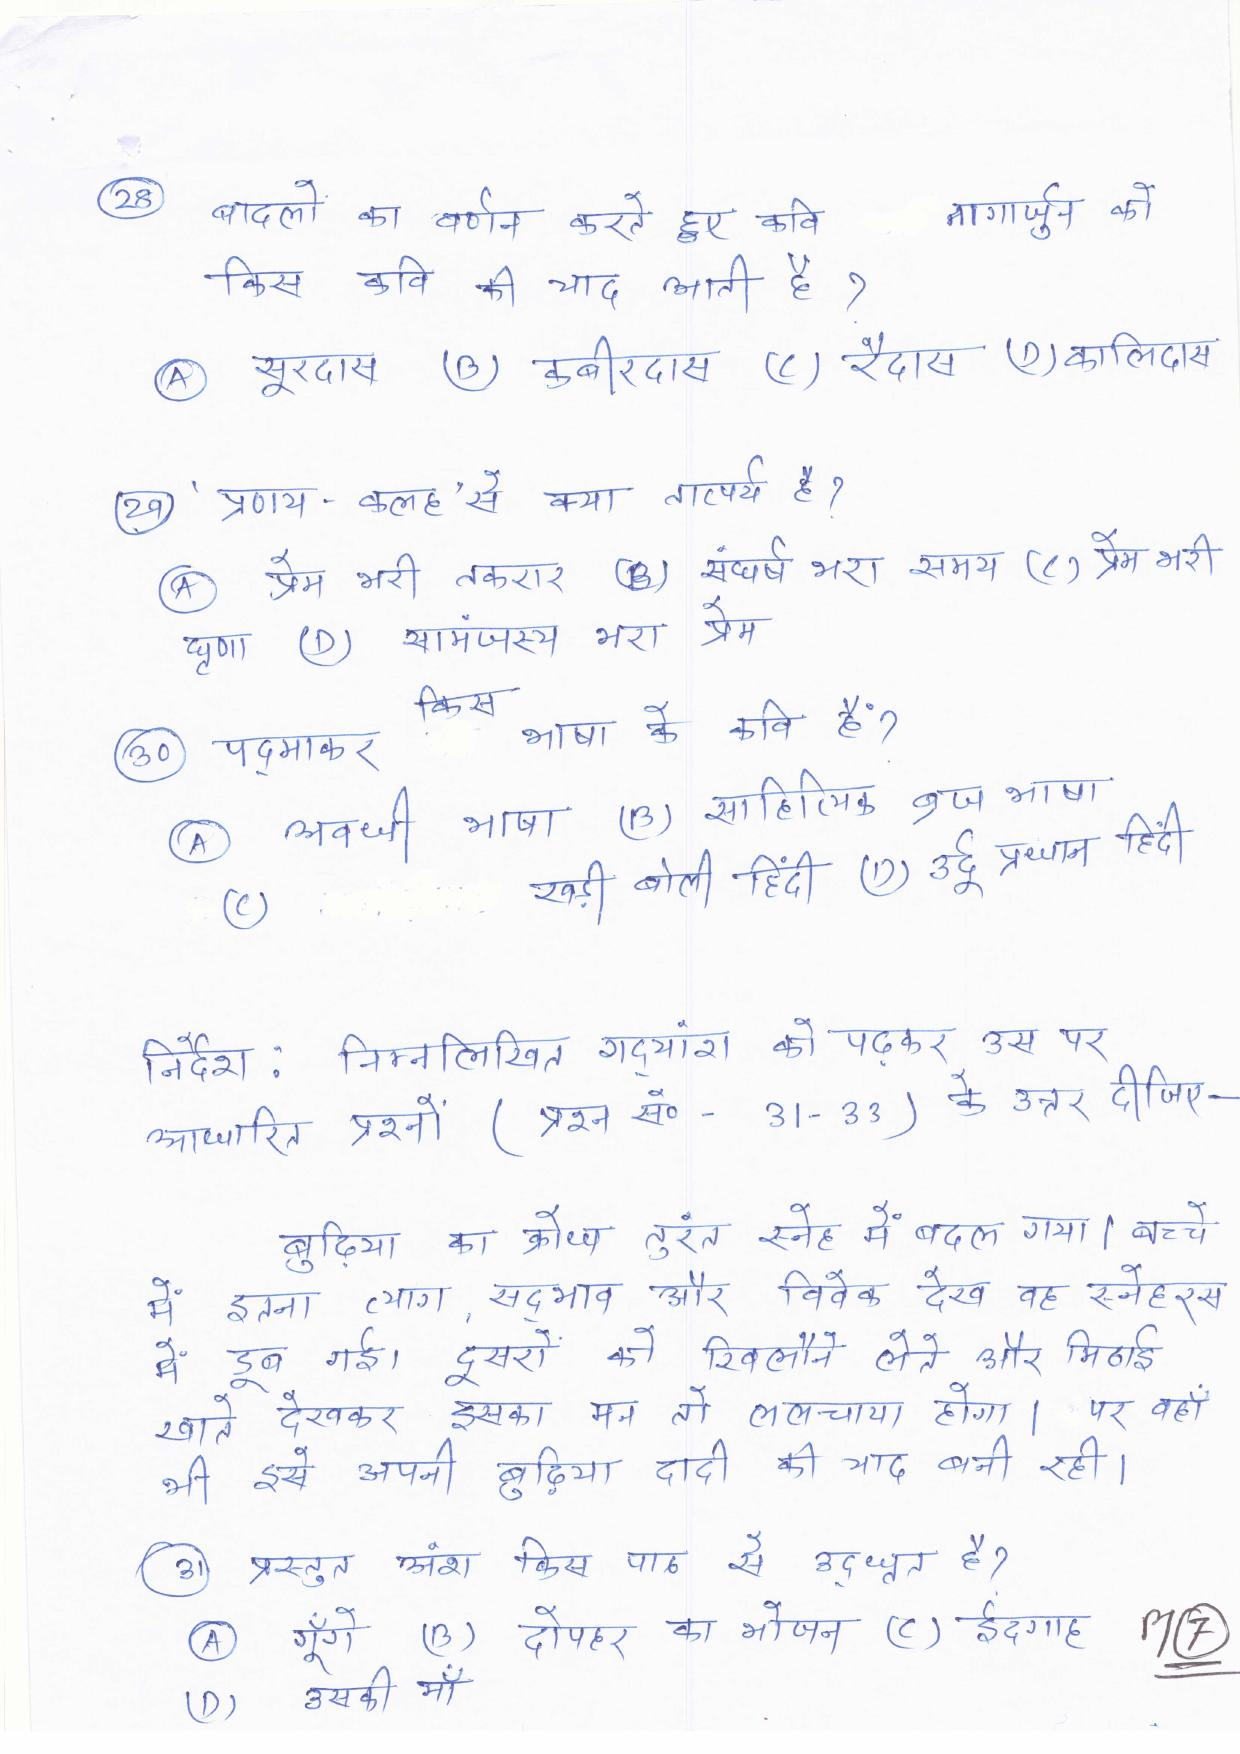 (28) बादलों का वर्णन करते हुए कवि नागार्जुन को
किस कवि की याद आती है ?
(A) सूरदास (B) कबीरदास (C) रैदास (D) कालिदास
(29) 'प्रणय - कलह' से क्या तात्पर्य है ?
(A) प्रेम भरी तकरार (B) संघर्ष भरा समय (C) प्रेम भरी
घृणा (D) सामंजस्य भरा प्रेम
(30) पद्माकर किस भाषा के कवि हैं ?
(A) अवधी भाषा (B) साहित्यिक ब्रज भाषा
(C) खड़ी बोली हिंदी (D) उर्दू प्रधान हिंदी
निर्देश : निम्नलिखित गद्यांश को पढ़कर उस पर
आधारित प्रश्नों ( प्रश्न सं० - 31-33 ) के उत्तर दीजिए -
बुढ़िया का क्रोध तुरंत स्नेह में बदल गया । बच्चे
में इतना त्याग, सद्भाव और विवेक देख वह स्नेहरस
में डूब गई। दूसरों को खिलौने लेते और मिठाई
खाते देखकर इसका मन तो ललचाया होगा । पर वहाँ
भी इसे अपनी बुढ़िया दादी की याद बनी रही ।
(31) प्रस्तुत अंश किस पाठ से उद्धृत है ?
(A) गूँगे (B) दोपहर का भोजन (C) ईदगाह
(D) उसकी माँ
P/7